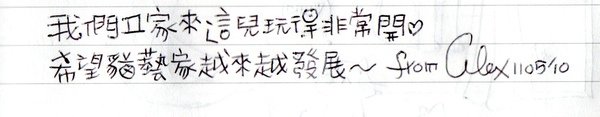 我們家來這兒玩得非常開♡
希望貓藝家越來越發展～ from Alex 1105/10